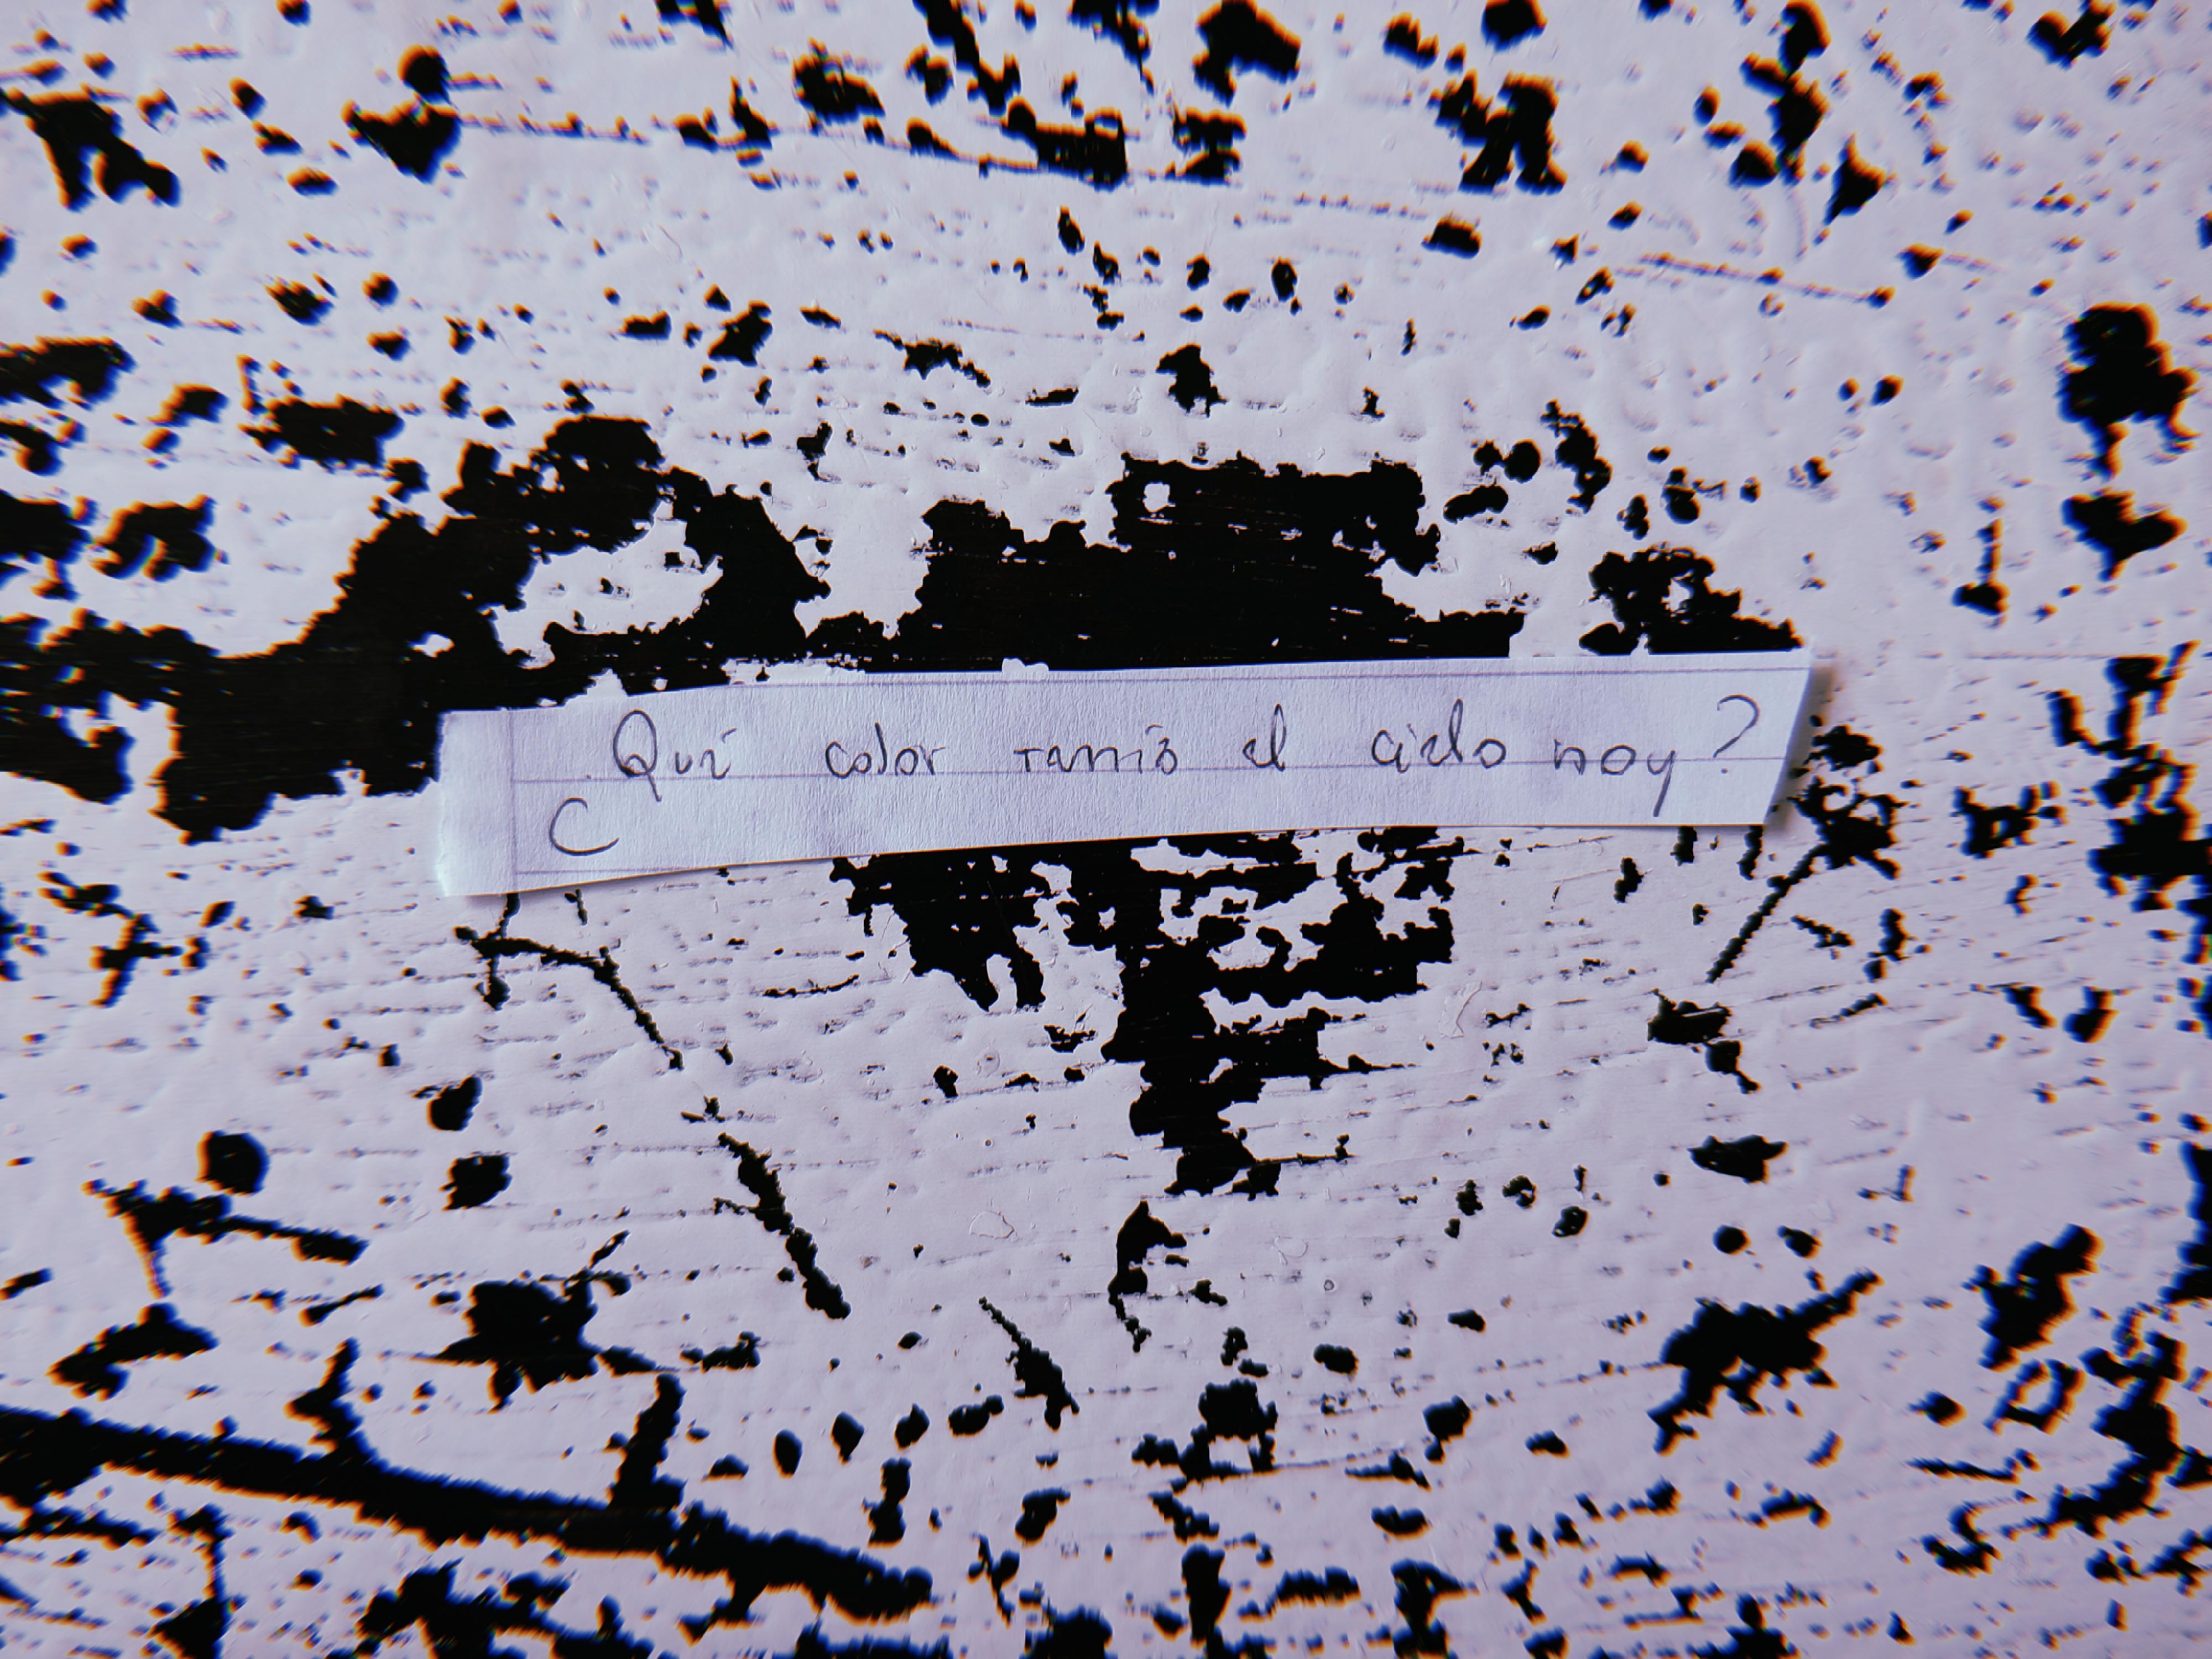 ¿Qué color tenía el cielo hoy?